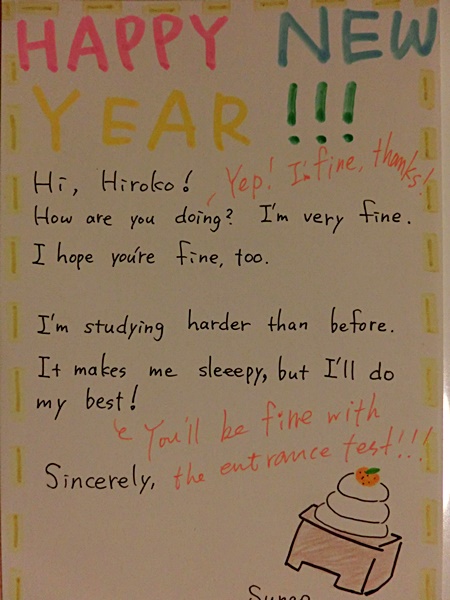 HAPPY NEW
YEAR !!!
Hi, Hiroko!
Yep! I'm fine, thanks!
How are you doing? I'm very fine.
I hope you're fine, too.
I'm studying harder than before.
It makes me sleeepy, but I'll do
my best!
You'll be fine with
the entrance test!!!
Sincerely,